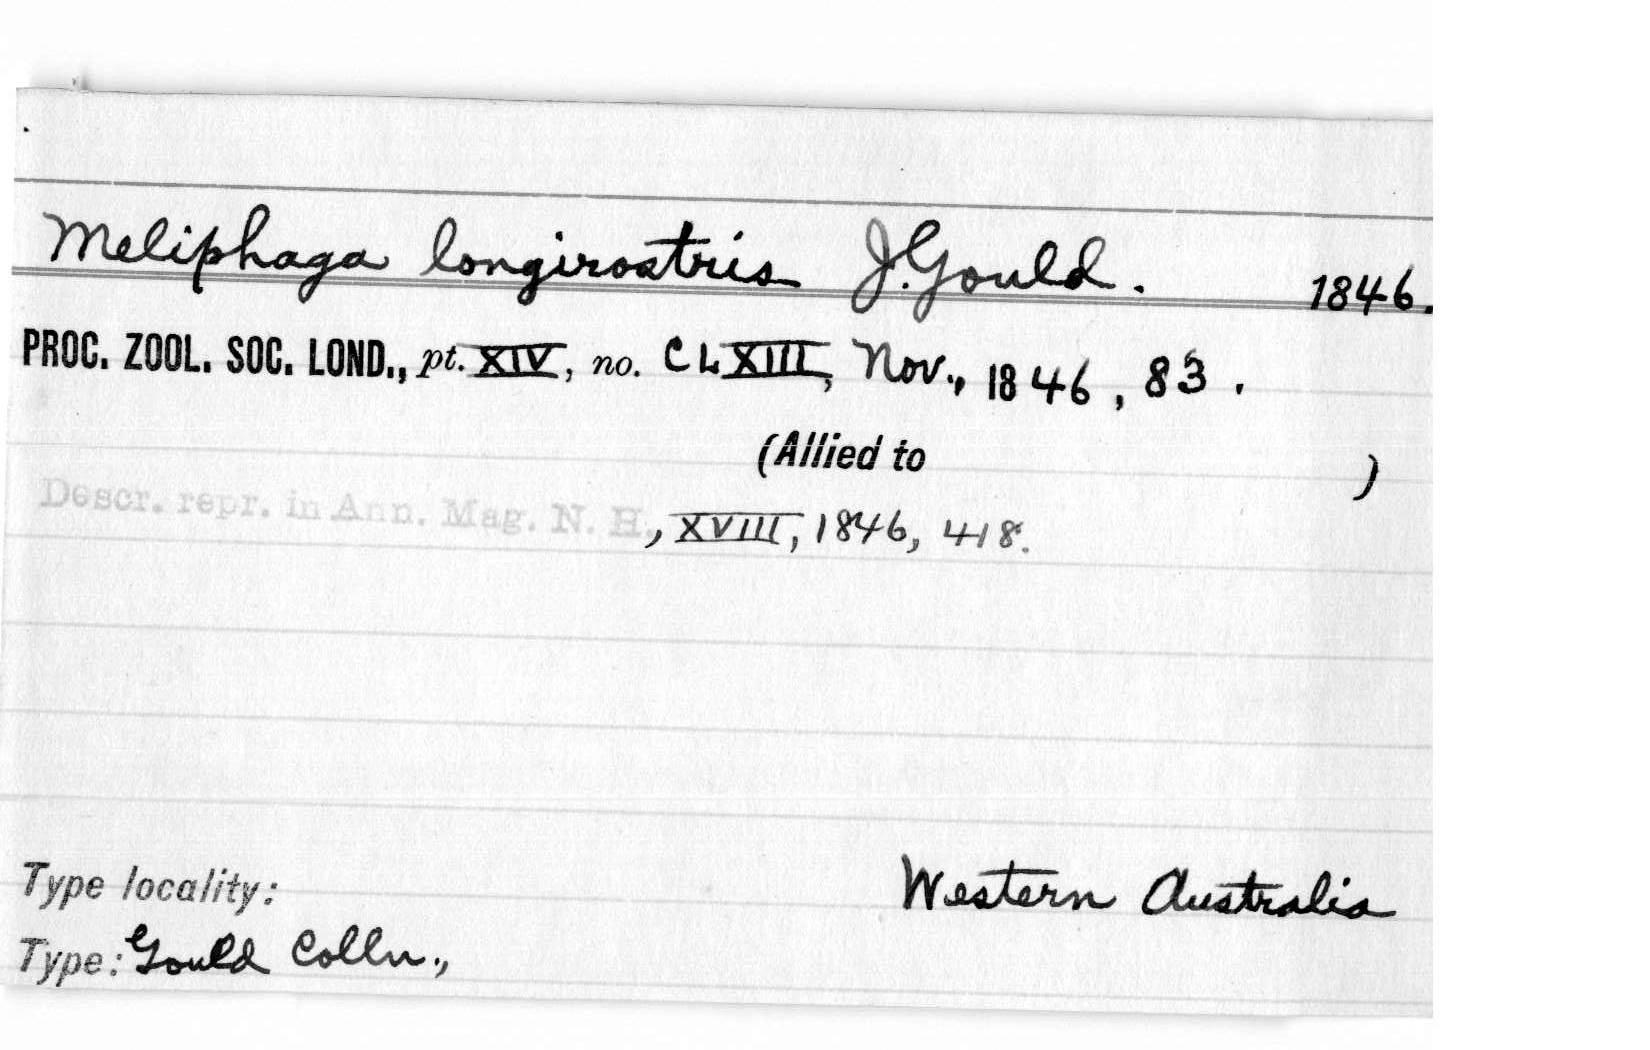 Meliphaga longirostris J. Gould. 1846.
PROC. ZOOL. SOC. LOND., pt. XIV, no. CLXIII, Nov., 1846, 83.
(Allied to )
Descr. repr. in Ann. Mag. N. H., XVIII, 1846, 418.
Type locality: Western Australia
Type: Gould Colln.,